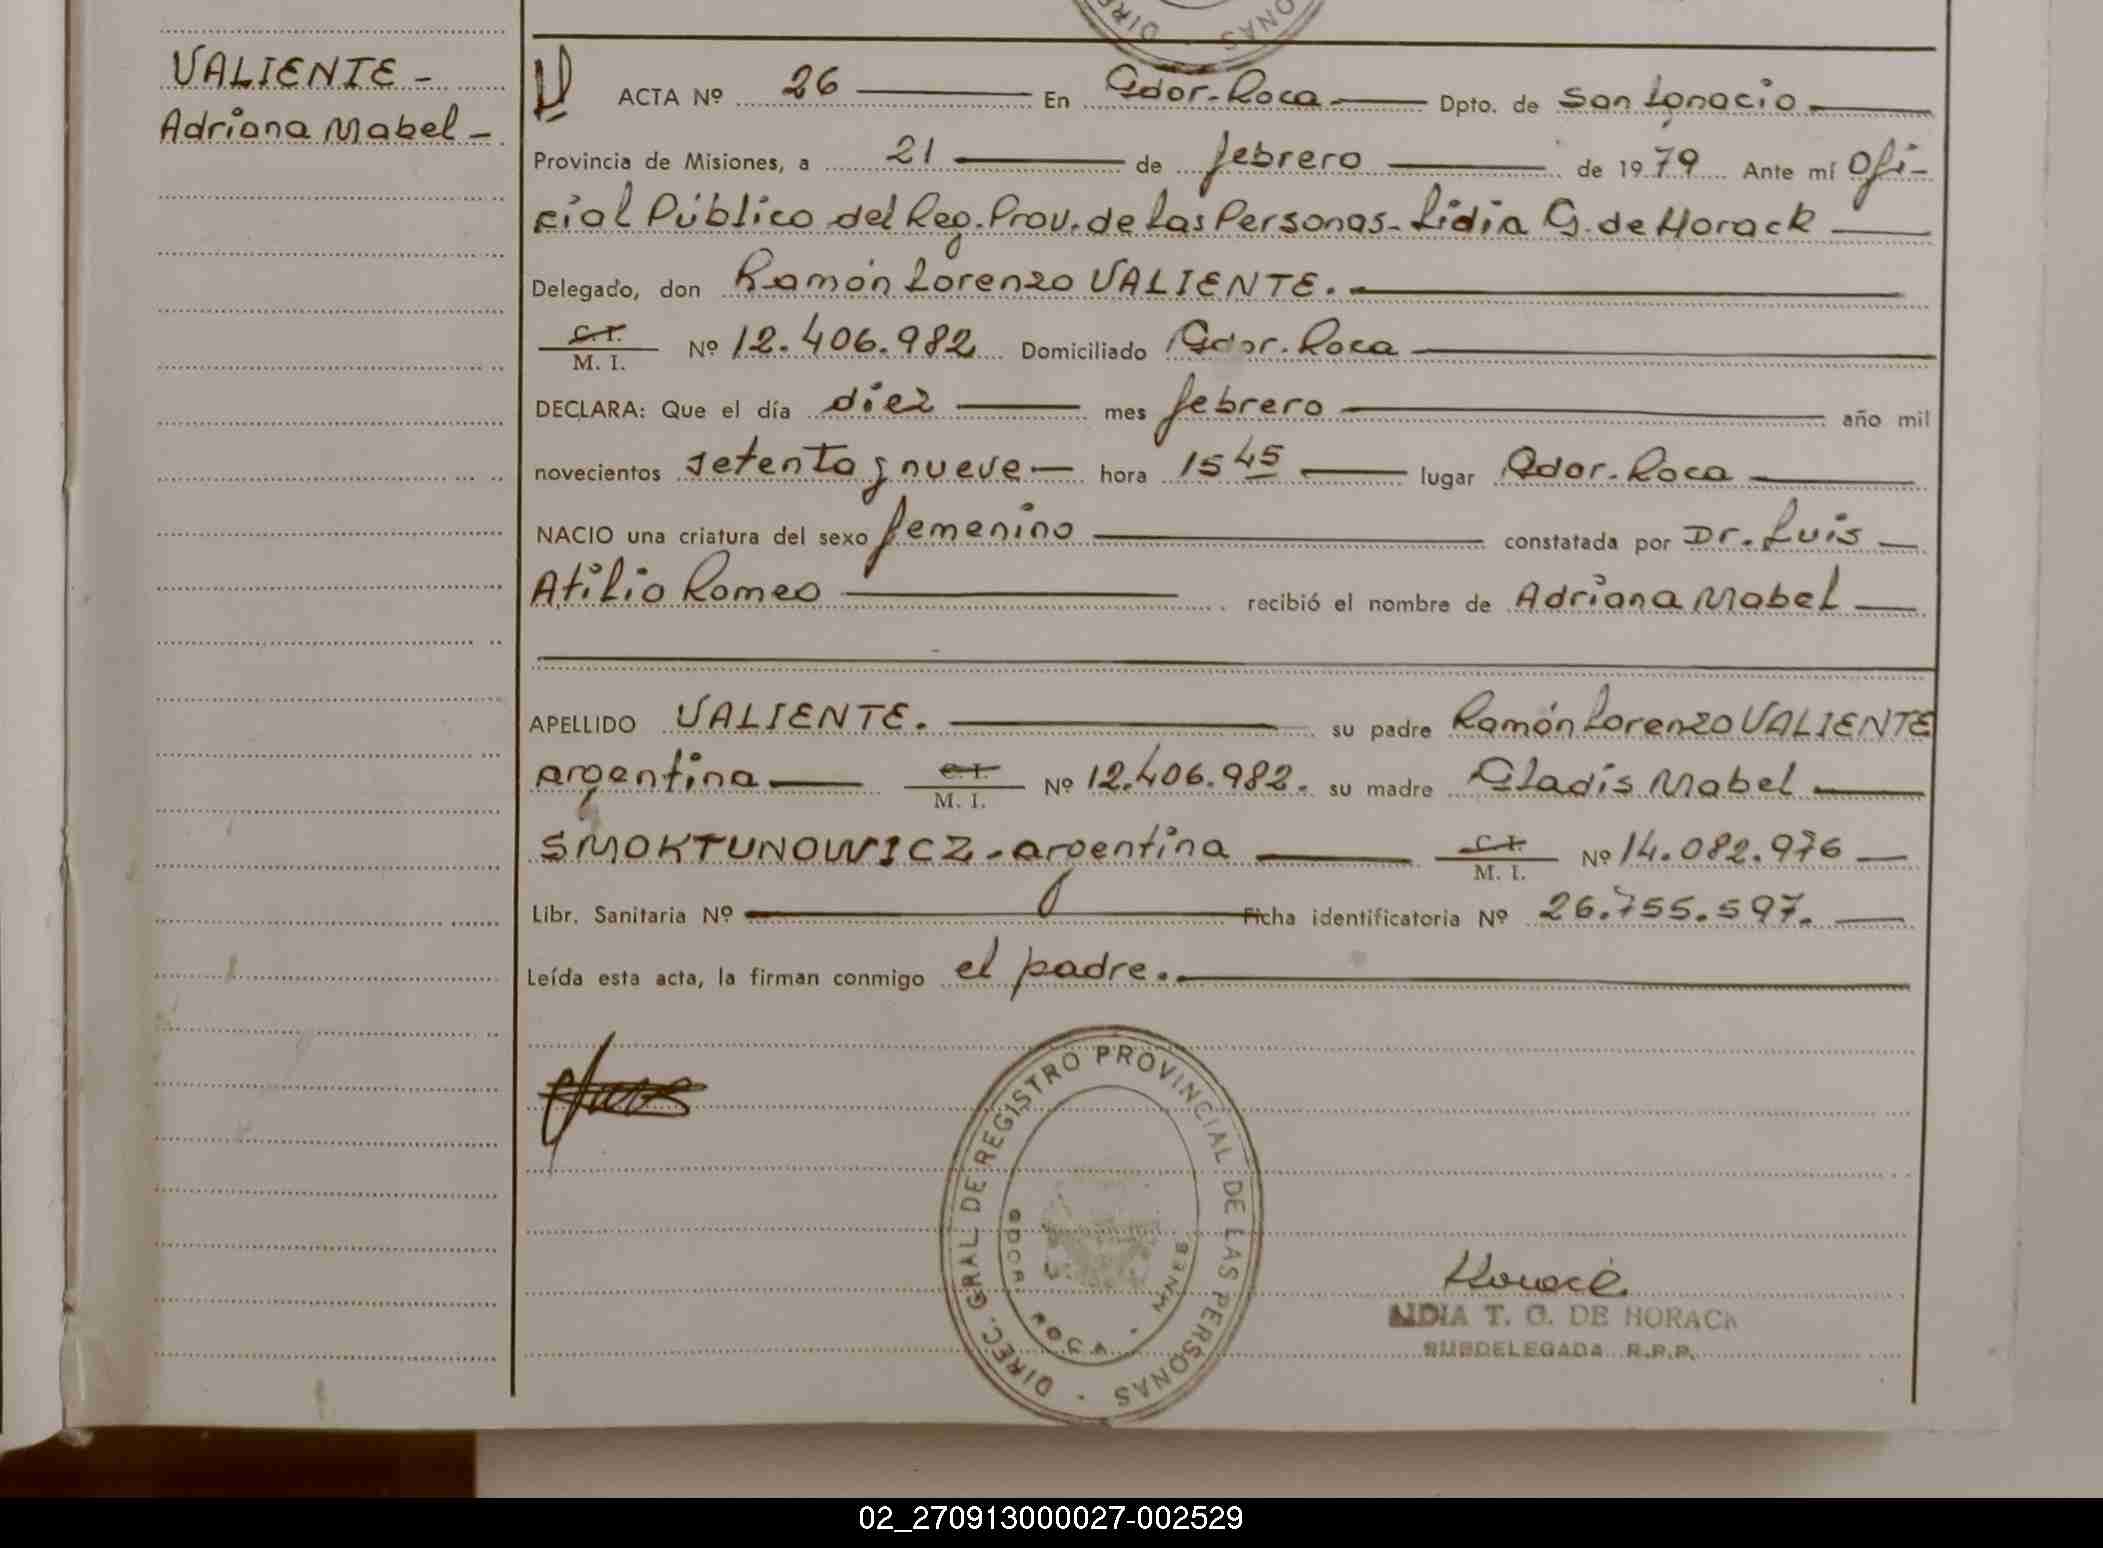 VALIENTE -
Adriana Mabel -
ACTA Nº 26 En Gdor. Roca Dpto. de San Ignacio
Provincia de Misiones, a 21 de febrero de 1979 Ante mí Ofi-
cial Público del Reg. Prov. de las Personas - Lidia G. de Horack
Delegado, don Ramón Lorenzo VALIENTE.
C. I.
M. I. Nº 12.406.982 Domiciliado Gdor. Roca
DECLARA: Que el día diez mes febrero año mil
novecientos setenta y nueve hora 15 45 lugar Gdor. Roca
NACIO una criatura del sexo femenino constatada por Dr. Luis
Atilio Romeo recibió el nombre de Adriana Mabel
APELLIDO VALIENTE. su padre Ramón Lorenzo VALIENTE
argentina C. I. M. I. Nº 12.406.982. su madre Gladis Mabel
SMOKTUNOWICZ - argentina C. I. M. I. Nº 14.082.976
Libr. Sanitaria Nº Ficha identificatoria Nº 26.755.597.
Leída esta acta, la firman conmigo el padre.
DIREC. GRAL DE REGISTRO PROVINCIAL DE LAS PERSONAS
GDOR ROCA - MNES
Horack
LIDIA T. G. DE HORACK
SUBDELEGADA R.P.P.
02_270913000027-002529